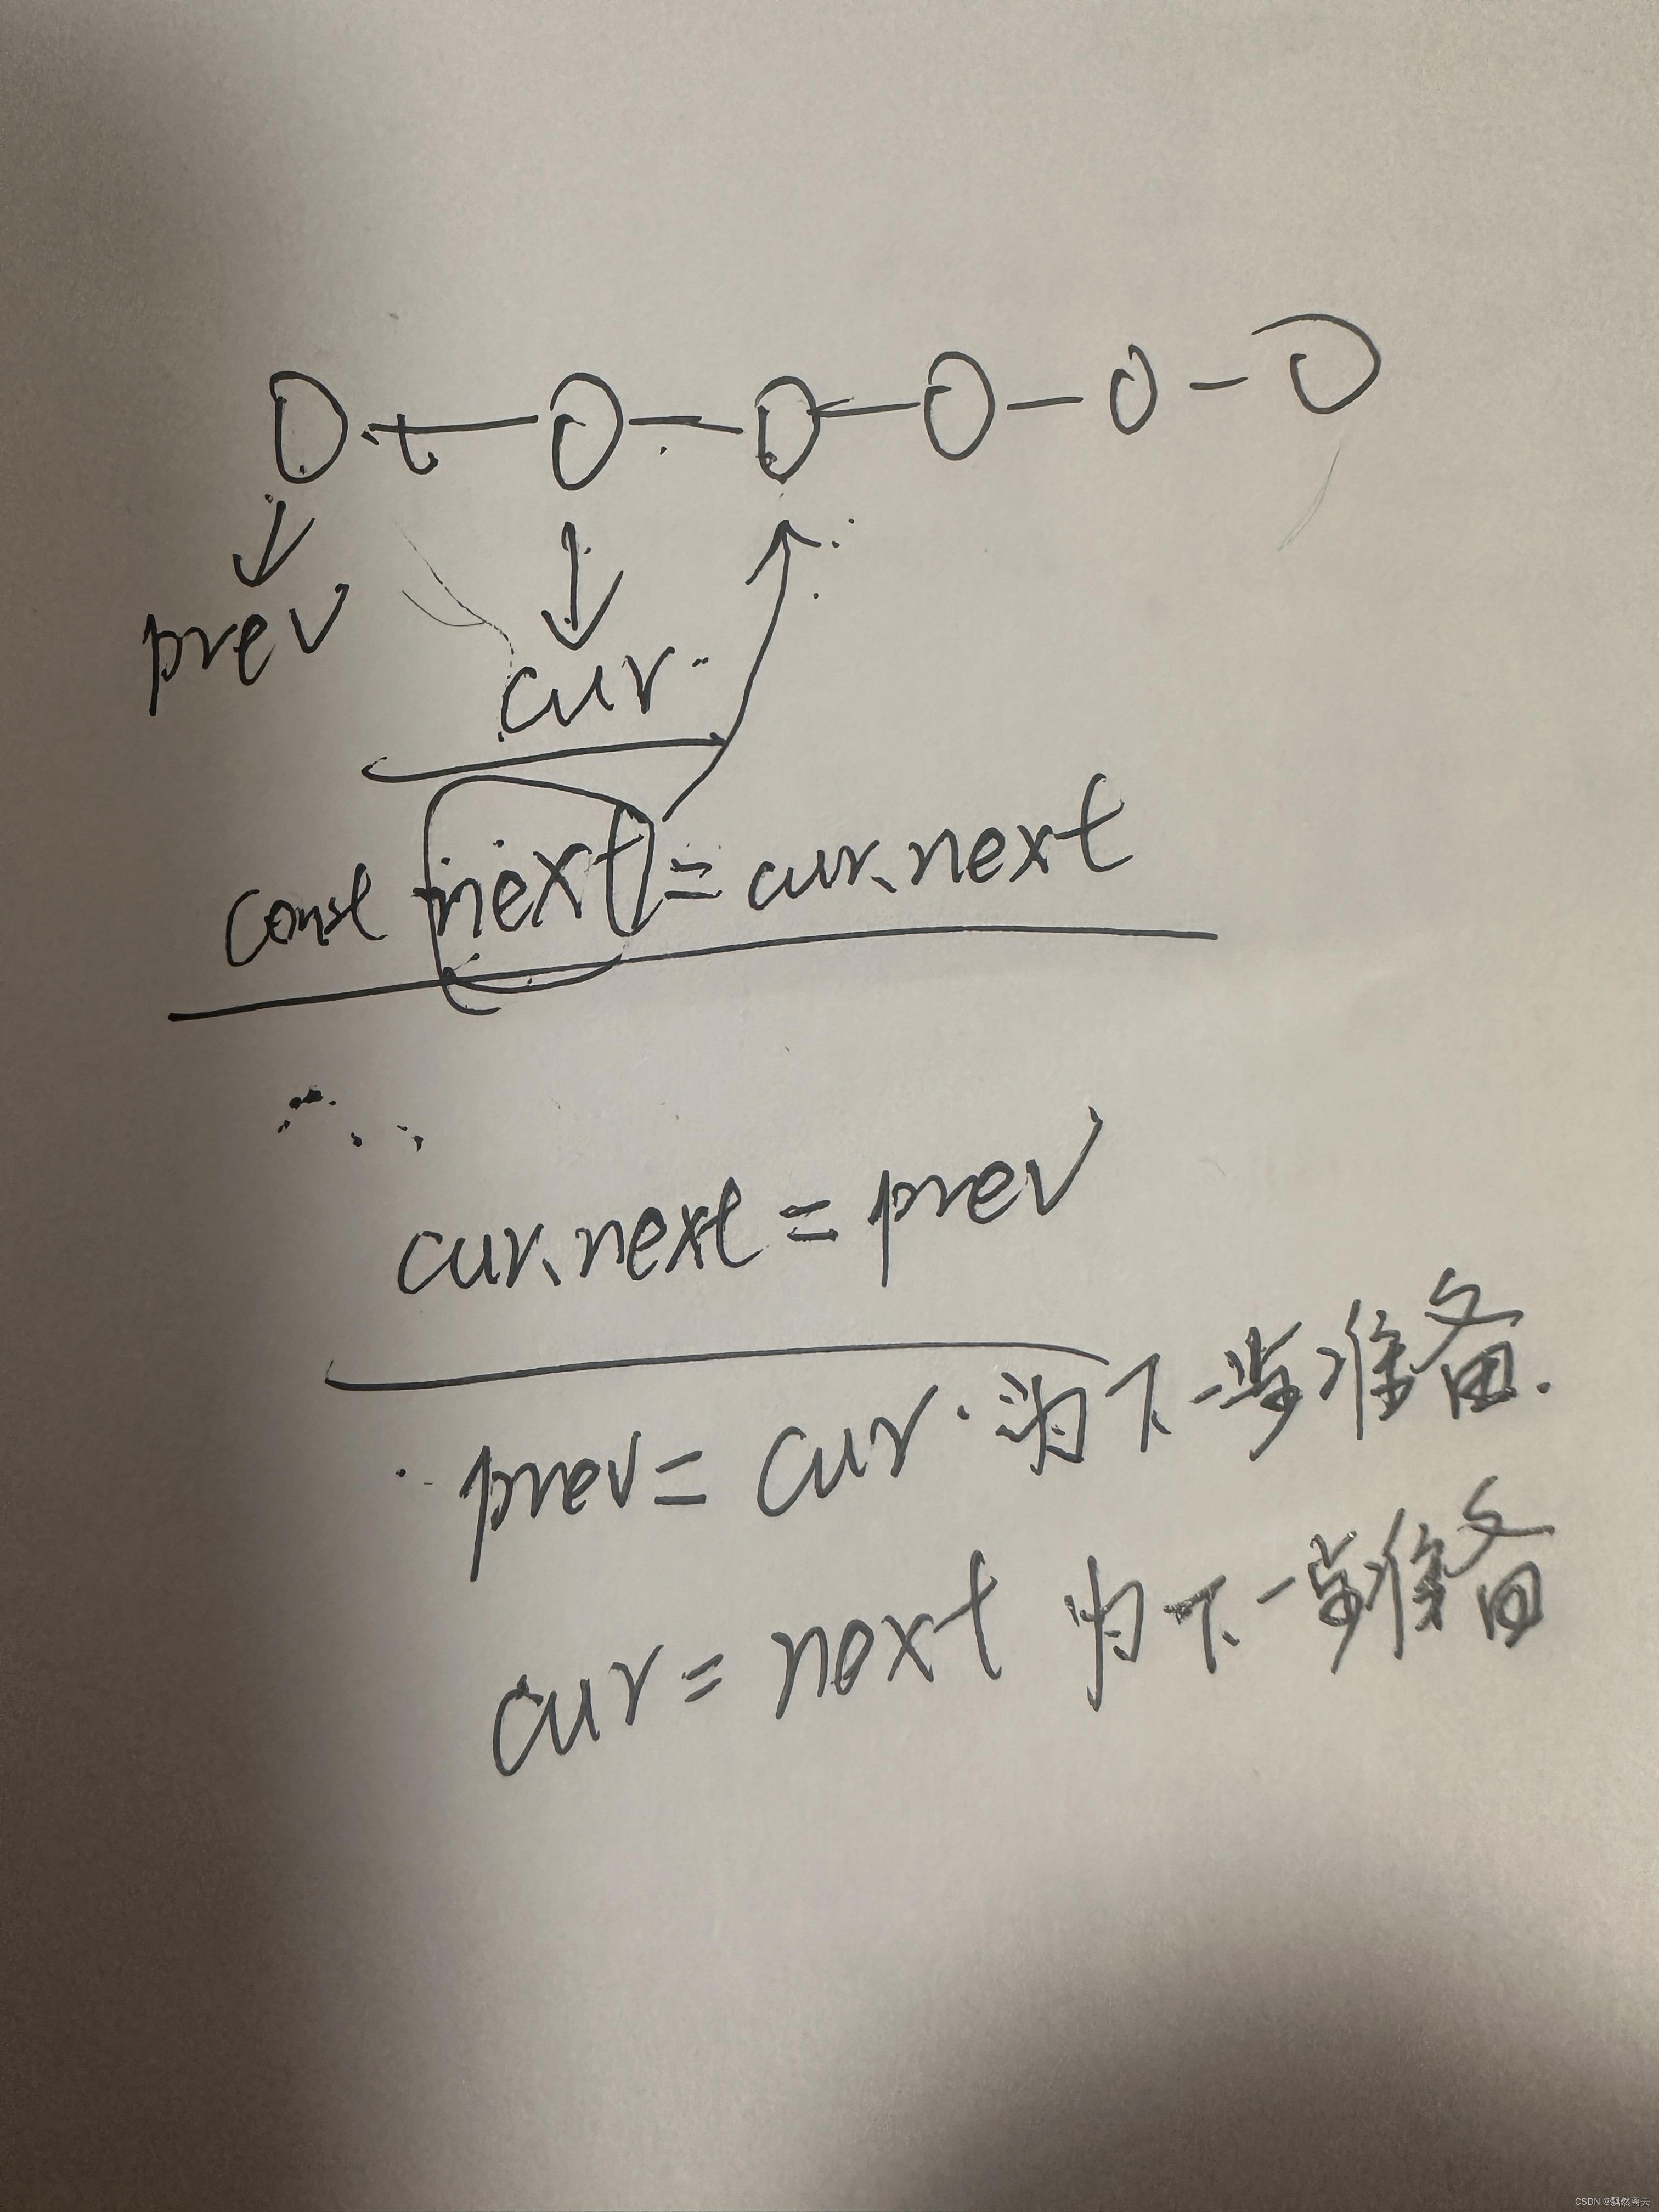 prev
cur
const next = cur.next
cur.next = prev
prev = cur 为下一步准备.
cur = next 为下一步准备
CSDN @飘然离去